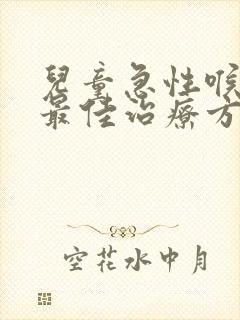 兒童急性喉
最佳治療方
空花水中月